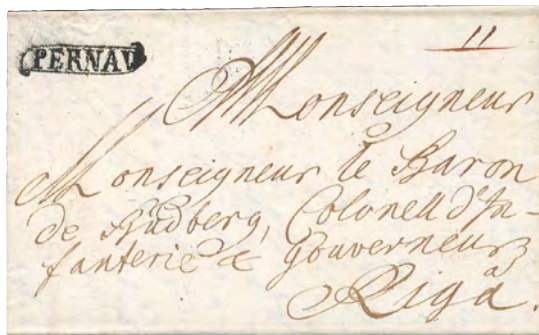 PERNAU
11
Monseigneur
Monseigneur le Baron
de Büdberg, Colonell d'In-
fanterie & Gouverneur
à
Riga.